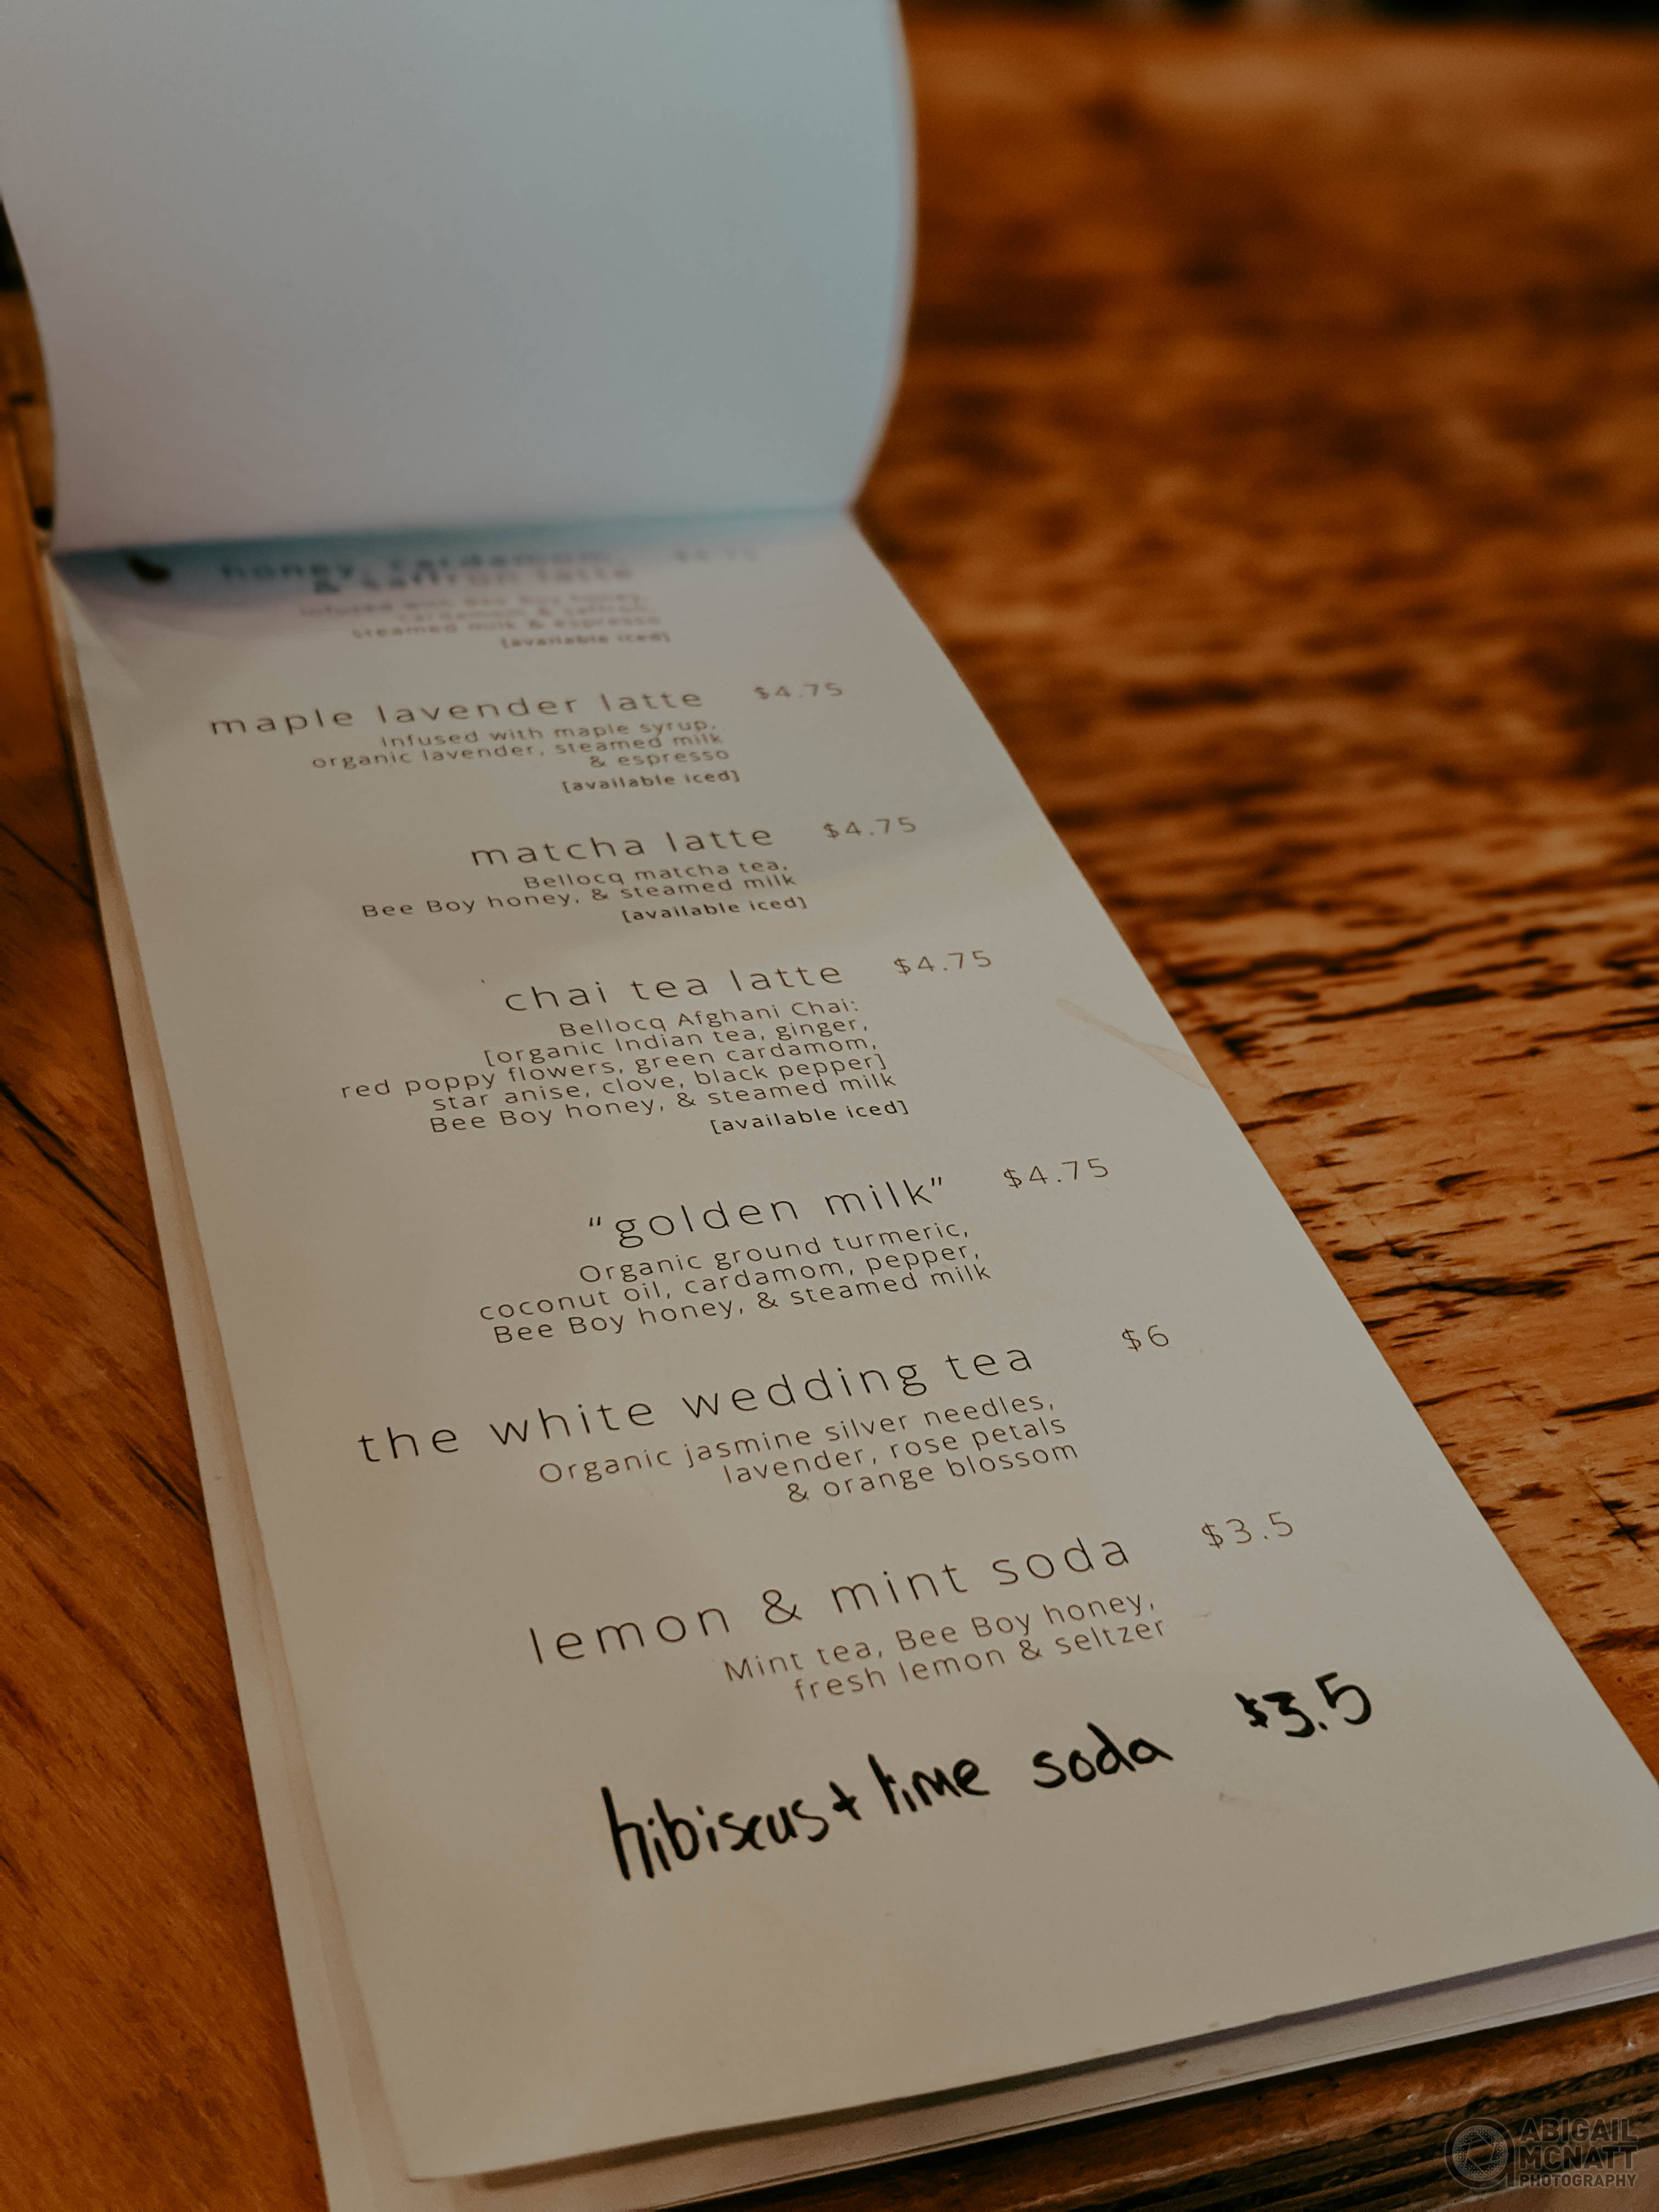 honey, cardamom, $4.75
& saffron latte
infused with Bee Boy honey,
cardamom & saffron,
steamed milk & espresso
[available iced]
maple lavender latte $4.75
infused with maple syrup,
organic lavender, steamed milk
& espresso
[available iced]
matcha latte $4.75
Bellocq matcha tea,
Bee Boy honey, & steamed milk
[available iced]
chai tea latte $4.75
Bellocq Afghani Chai:
[organic Indian tea, ginger,
red poppy flowers, green cardamom,
star anise, clove, black pepper]
Bee Boy honey, & steamed milk
[available iced]
“golden milk” $4.75
Organic ground turmeric,
coconut oil, cardamom, pepper,
Bee Boy honey, & steamed milk
the white wedding tea $6
Organic jasmine silver needles,
lavender, rose petals
& orange blossom
lemon & mint soda $3.5
Mint tea, Bee Boy honey,
fresh lemon & seltzer
hibiscus + lime soda $3.5
ABIGAIL
MCNATT
PHOTOGRAPHY